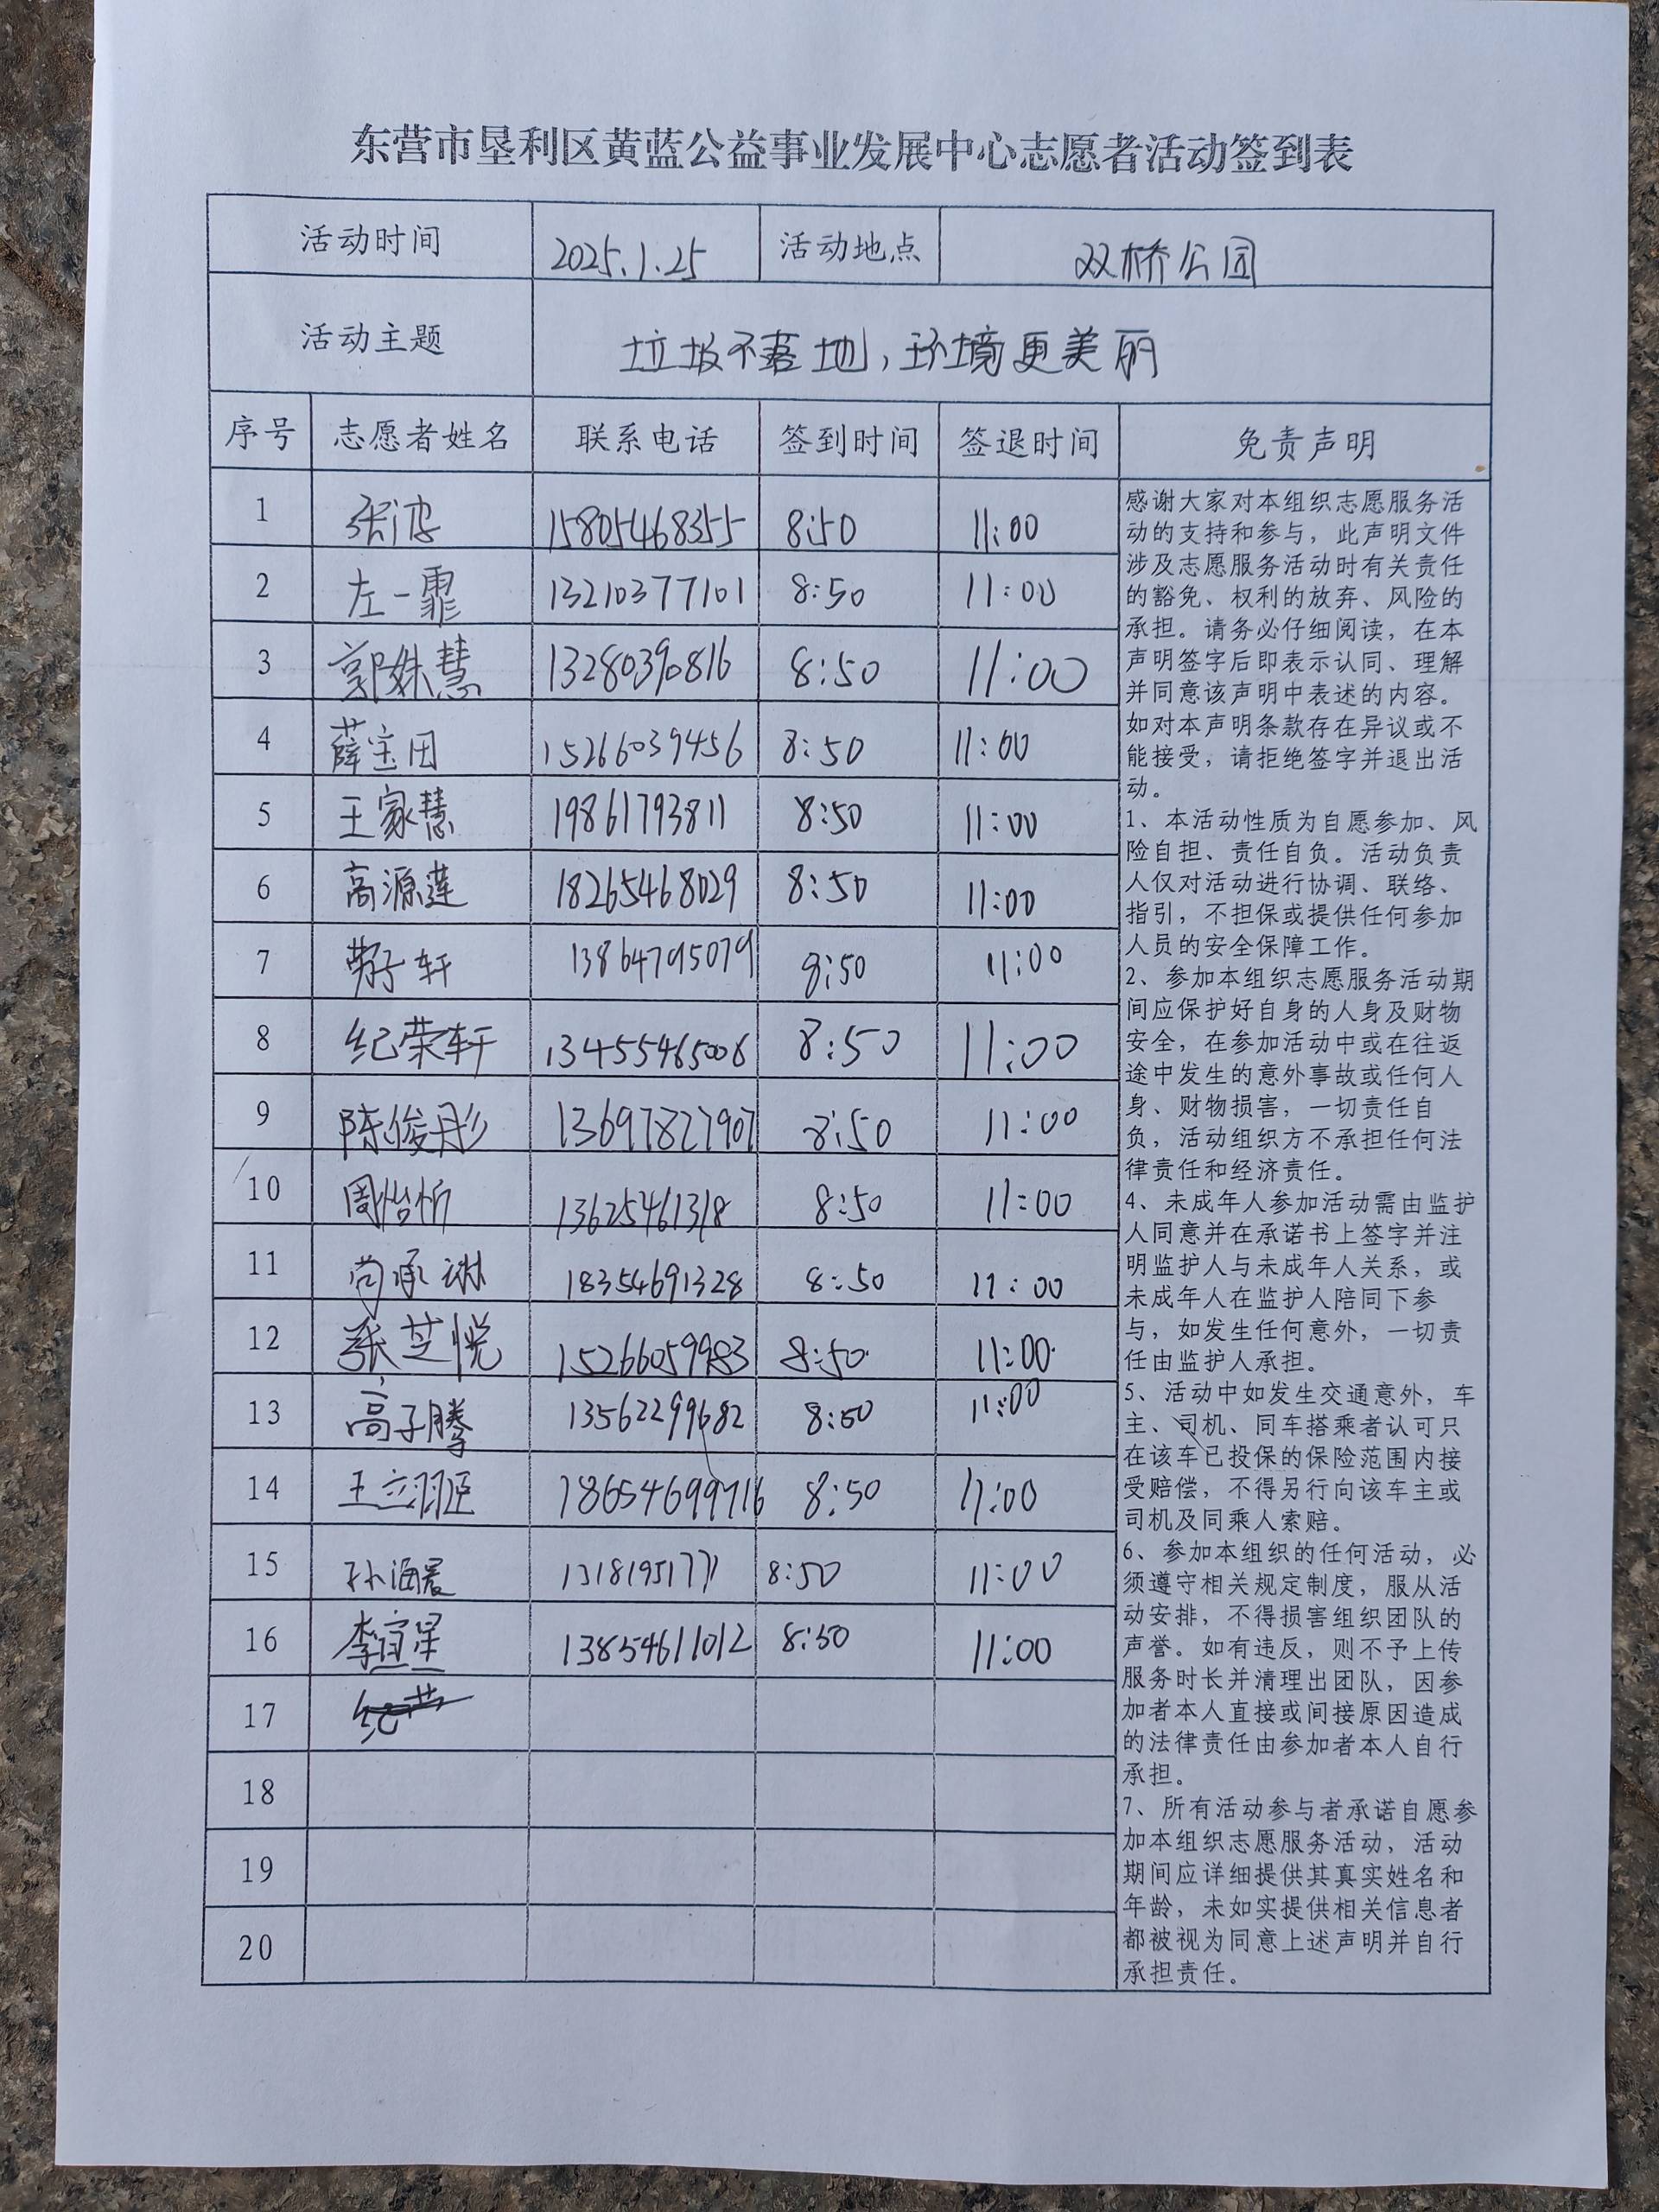 东营市垦利区黄蓝公益事业发展中心志愿者活动签到表
活动时间 2025.1.25 活动地点 双桥公园
活动主题 垃圾不落地，环境更美丽
序号 志愿者姓名 联系电话 签到时间 签退时间 免责声明
1 张 15805468355 8:50 11:00
2 左一霏 13210377101 8:50 11:00
3 郭姝慧 13280390816 8:50 11:00
4 薛宝田 15266039456 8:50 11:00
5 王家慧 19861793811 8:50 11:00
6 高源莲 18265468029 8:50 11:00
7 劳子轩 13864795079 8:50 11:00
8 纪荣轩 13455465006 8:50 11:00
9 陈俊彤 13697827907 8:50 11:00
10 周怡忻 13625461318 8:50 11:00
11 尚承琳 18354691328 8:50 11:00
12 张芝悦 15266059983 8:50 11:00
13 高子腾 13562299682 8:50 11:00
14 王立翤 18654699716 8:50 11:00
15 孙涵宸 8:50 11:00
16 李宜星 13854611012 8:50 11:00
17
18
19
20
感谢大家对本组织志愿服务活
动的支持和参与，此声明文件
涉及志愿服务活动时有关责任
的豁免、权利的放弃、风险的
承担。请务必仔细阅读，在本
声明签字后即表示认同、理解
并同意该声明中表述的内容。
如对本声明条款存在异议或不
能接受，请拒绝签字并退出活
动。
1、本活动性质为自愿参加、风
险自担、责任自负。活动负责
人仅对活动进行协调、联络、
指引，不担保或提供任何参加
人员的安全保障工作。
2、参加本组织志愿服务活动期
间应保护好自身的人身及财物
安全，在参加活动中或在往返
途中发生的意外事故或任何人
身、财物损害，一切责任自
负，活动组织方不承担任何法
律责任和经济责任。
4、未成年人参加活动需由监护
人同意并在承诺书上签字并注
明监护人与未成年人关系，或
未成年人在监护人陪同下参
与，如发生任何意外，一切责
任由监护人承担。
5、活动中如发生交通意外，车
主、司机、同车搭乘者认可只
在该车已投保的保险范围内接
受赔偿，不得另行向该车主或
司机及同乘人索赔。
6、参加本组织的任何活动，必
须遵守相关规定制度，服从活
动安排，不得损害组织团队的
声誉。如有违反，则不予上传
服务时长并清理出团队，因参
加者本人直接或间接原因造成
的法律责任由参加者本人自行
承担。
7、所有活动参与者承诺自愿参
加本组织志愿服务活动，活动
期间应详细提供其真实姓名和
年龄，未如实提供相关信息者
都被视为同意上述声明并自行
承担责任。